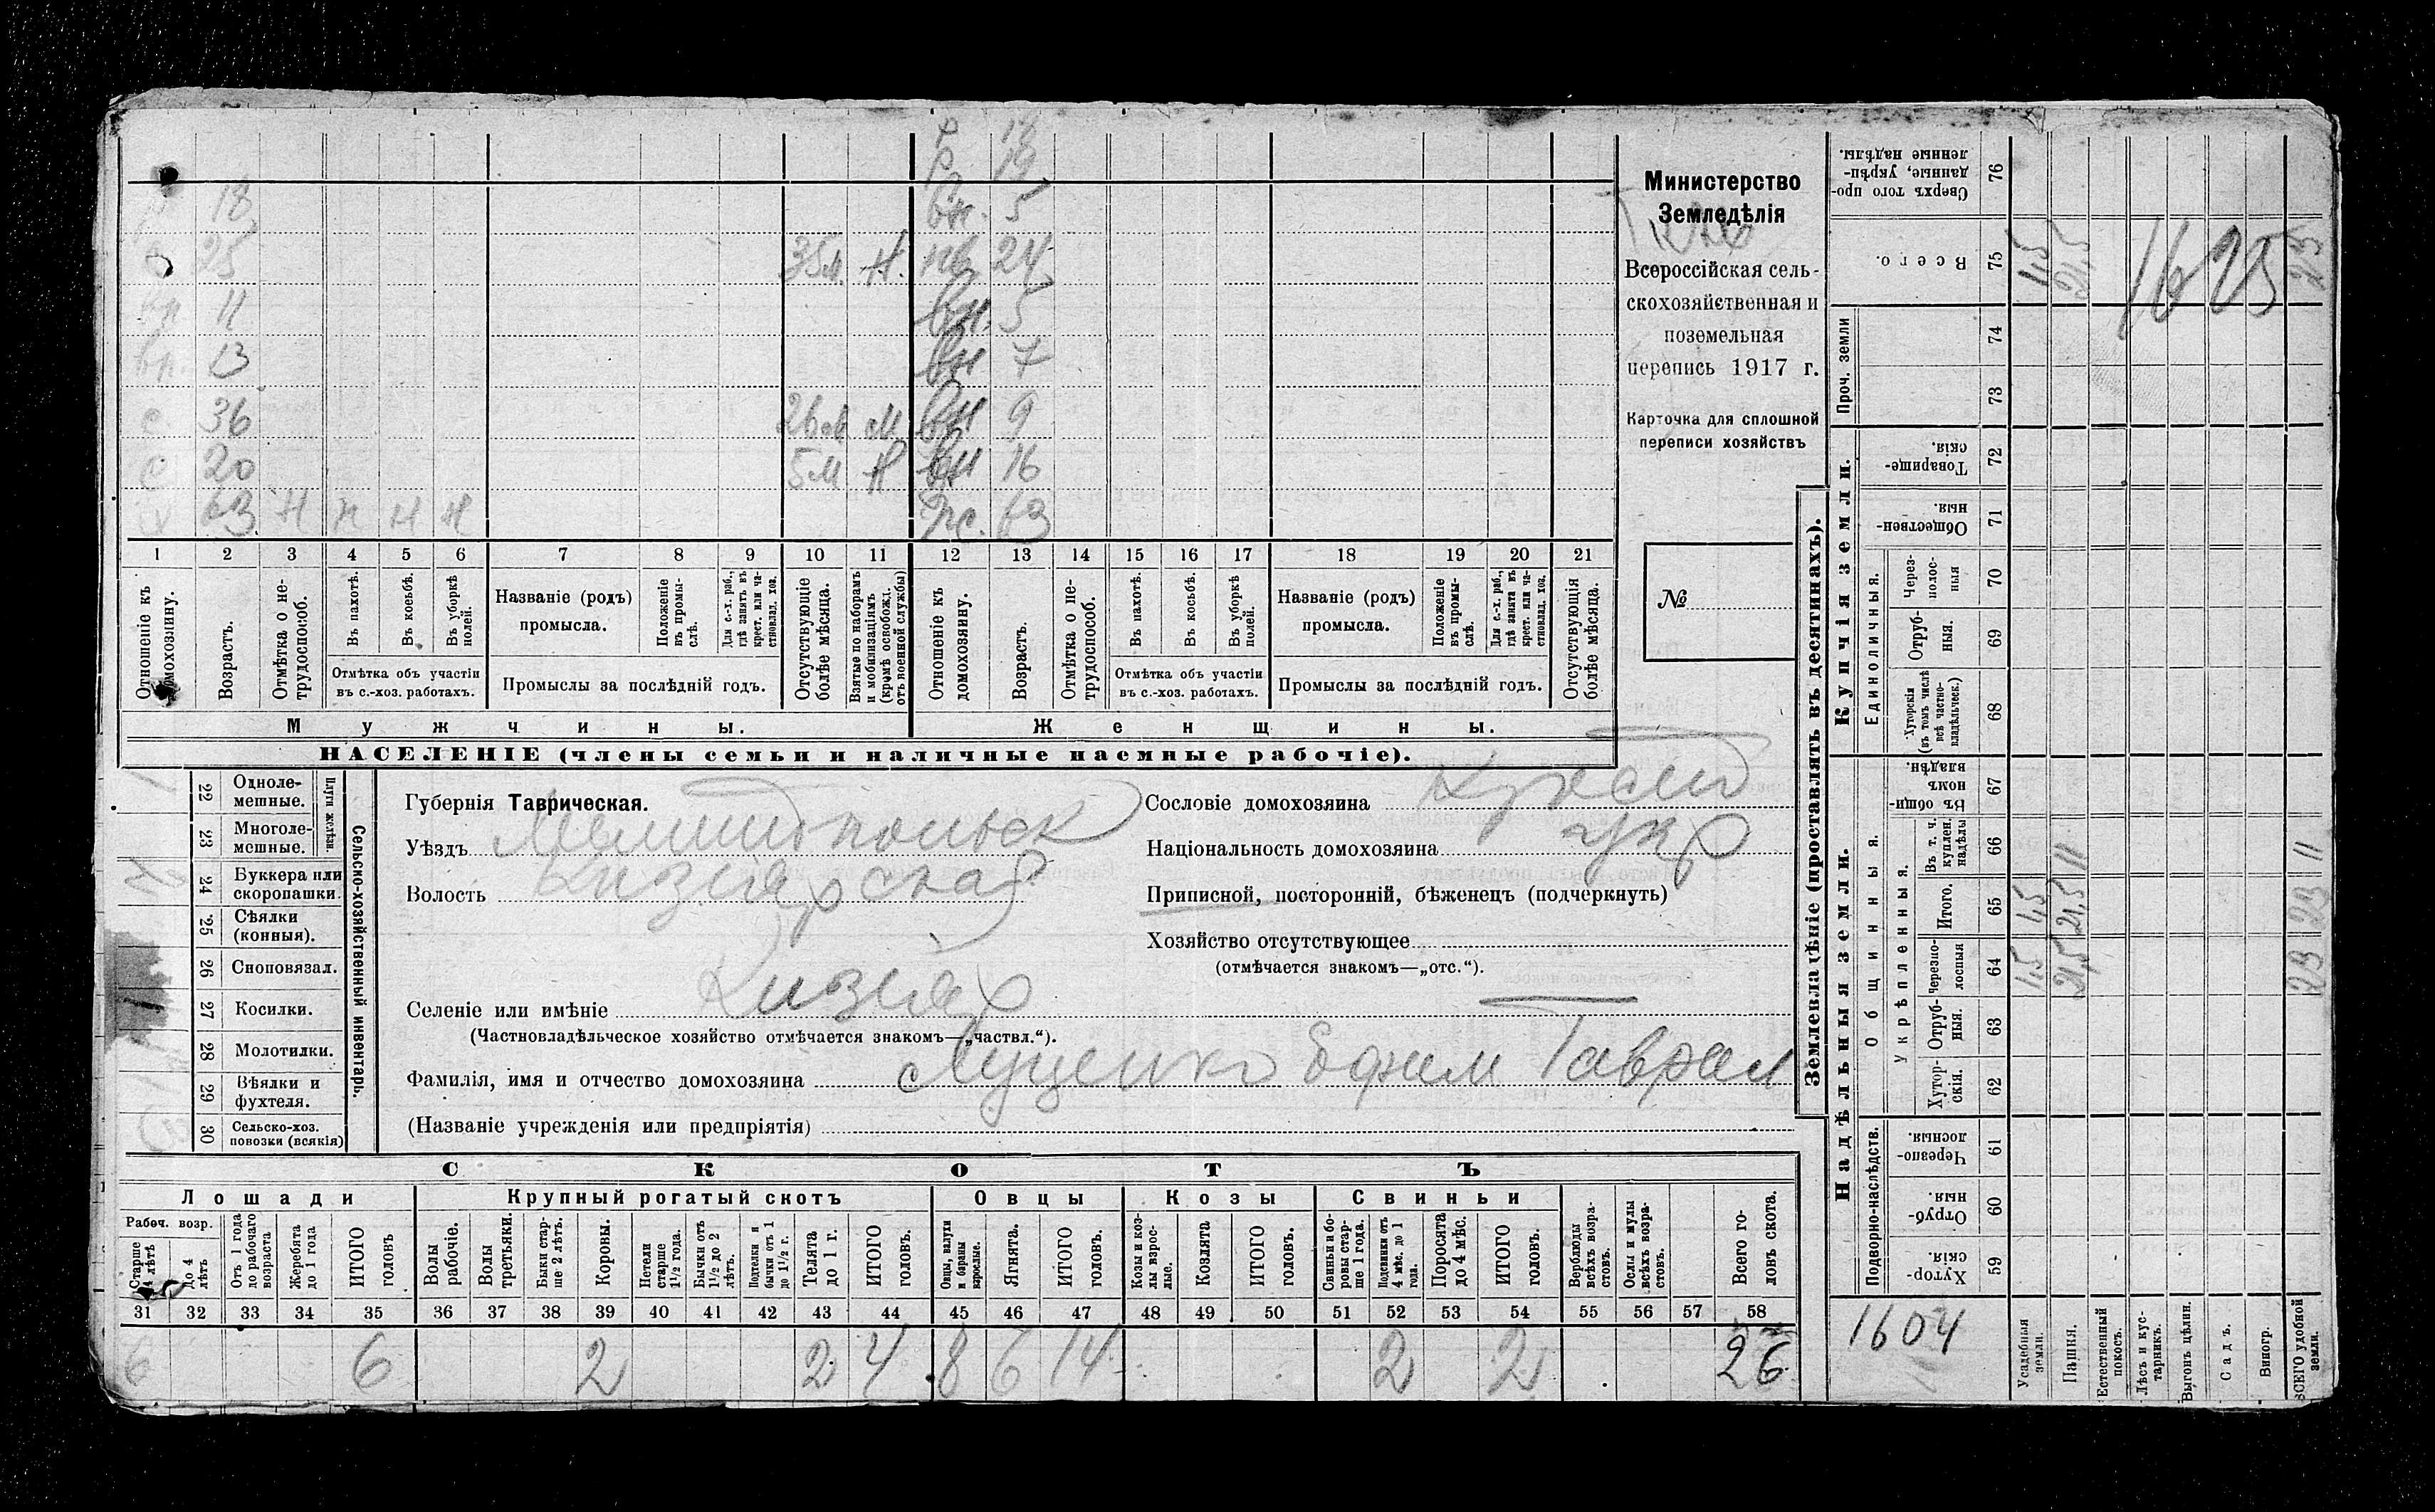 р 18
р. 19
р 18 вн. 5
с 25 35м. Н. нв 24
вн 11 вн. 5
вн. 13 вн 7
с 36 26м М вн 9
с 20 5м Н вн 16
х 63 Н Н Н Н жс. 63
1 2 3 4 5 6 7 8 9 10 11 12 13 14 15 16 17 18 19 20 21
Отношеніе къ домохозяину.
Возрастъ.
Отмѣтка о нетрудоспособ.
Въ пахотѣ.
Въ косьбѣ.
Въ уборкѣ полей.
Отмѣтка объ участіи въ с.-хоз. работахъ.
Названіе (родъ) промысла.
Положеніе въ промыслѣ.
Для с.-х. раб., гдѣ занятъ въ крест. или частновлад. хоз.
Промыслы за послѣдній годъ.
Отсутствующіе болѣе мѣсяца.
Взятые по наборамъ и мобилизаціямъ (кромѣ освобожд. отъ военной службы)
Отношеніе къ домохозяину.
Возрастъ.
Отмѣтка о нетрудоспособ.
Въ пахотѣ.
Въ косьбѣ.
Въ уборкѣ полей.
Отмѣтка объ участіи въ с.-хоз. работахъ.
Названіе (родъ) промысла.
Положеніе въ промыслѣ.
Для с.-х. раб., гдѣ занята въ крест. или частновлад. хоз.
Промыслы за послѣдній годъ.
Отсутствующія болѣе мѣсяца.
Мужчины. Женщины.
НАСЕЛЕНІЕ (члены семьи и наличные наемные рабочіе).
Министерство
Земледѣлія
Всероссійская сель-
скохозяйственная и
поземельная
перепись 1917 г.
Карточка для сплошной
переписи хозяйствъ
№
22 Одноле-
мешные.
23 Многоле-
мешные.
Плуги желѣзн.
24 Буккера или
скоропашки.
25 Сѣялки
(конныя).
26 Сноповязал.
27 Косилки. 1
28 Молотилки.
29 Вѣялки и
фухтеля.
30 Сельско-хоз.
повозки (всякія)
Сельско-хозяйственный инвентарь.
Губернія Таврическая.
Уѣздъ Мелитопольск
Волость Кизіярская
Селеніе или имѣніе Кизіяр
(Частновладѣльческое хозяйство отмѣчается знакомъ—„частвл.“).
Фамилія, имя и отчество домохозяина Луценко Ефим Гаврил
(Названіе учрежденія или предпріятія)
Сословіе домохозяина Крест
Національность домохозяина укр
Приписной, посторонній, бѣженецъ (подчеркнуть)
Хозяйство отсутствующее
(отмѣчается знакомъ—„отс.“).
СКОТЪ
Лошади Крупный рогатый скотъ Овцы Козы Свиньи
Рабоч. возр.
Старше 4 лѣтъ
До 4 лѣтъ
Отъ 1 года до рабочаго возраста
Жеребята до 1 года
ИТОГО головъ
Волы рабочіе.
Волы третьяки.
Быки старше 2 лѣтъ.
Коровы.
Нетели старше 1½ года.
Бычки отъ 1½ до 2 лѣтъ.
Подтелки и бычки отъ 1 до 1½ г.
Телята до 1 г.
ИТОГО головъ.
Овцы, валухи и бараны взрослые.
Ягнята.
ИТОГО головъ.
Козы и козлы взрослые.
Козлята
ИТОГО головъ.
Свиньи и боровы старше 1 года.
Подсвинки отъ 4 мѣс. до 1 года.
Поросята до 4 мѣс.
ИТОГО головъ.
Верблюды всѣхъ возрастовъ.
Ослы и мулы всѣхъ возрастовъ.
Всего головъ скота.
31 32 33 34 35 36 37 38 39 40 41 42 43 44 45 46 47 48 49 50 51 52 53 54 55 56 57 58
6 6 2 2 4 8 6 14 2 2 26
Землевладѣніе (проставлять въ десятинахъ).
Купчія земли.
Надѣльныя земли.
Сверхъ того проданные, укрѣпленные надѣлы. 76
Всего. 75 1,5 21,5 23
1625
Проч. земли 74
73
Товарищескія 72
Общественныя. 71
Единоличныя.
Черезполосныя 70
Отрубныя. 69
Хуторскія (въ томъ числѣ всѣ частновладѣльческ.) 68
Общинныя.
Въ общинномъ владѣн. 67
Укрѣпленныя.
Въ т. ч. куплен. надѣлы 66 11 11
Итого. 65 1,5 21,5 23
Черезполосныя 64 1,5 21,5 23
Отрубныя. 63
Хуторскія. 62
Подворно-наслѣдств.
Черезполосныя. 61
Отрубныя. 60
Хуторскія. 59
1604
Усадебныя земли.
Пашня.
Естественный покосъ.
Лѣсъ и кустарникъ.
Выгонъ цѣлин.
Садъ.
Виногр.
ВСЕГО удобной земли.